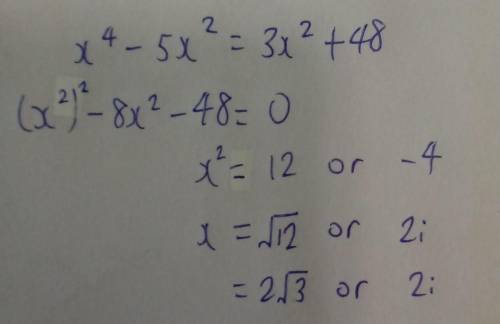 x⁴ - 5x² = 3x² + 48
(x²)² - 8x² - 48 = 0
x² = 12 or -4
x = √12 or 2i
= 2√3 or 2i